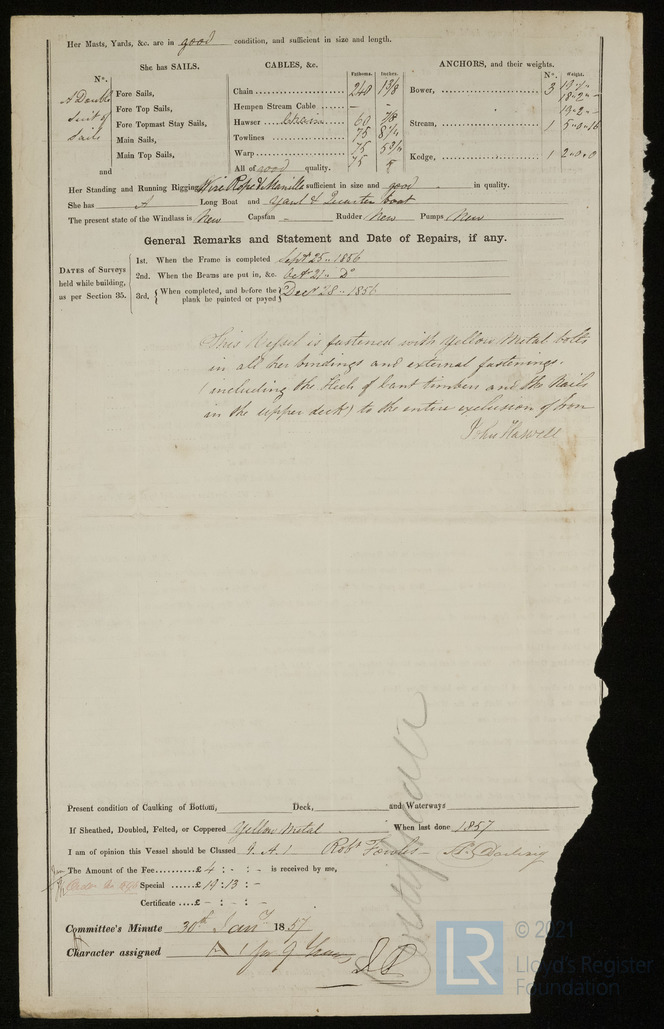 Her Masts, Yards, &c. are in good condition, and sufficient in size and length.
She has SAILS.
CABLES, &c.
Fathoms.
Inches.
ANCHORS, and their weights.
Nº.
Weight.
Nº.
A Double
Suit of
Sails
Fore Sails,
Fore Top Sails,
Fore Topmast Stay Sails,
Main Sails,
Main Top Sails,
and
Chain 240 1 3/8
Hempen Stream Cable — —
Hawser Chain 60 7/8
Towlines 75
Warp 75
75 5
All of good quality.
Bower, 3
Stream, 1 5 " 0 " 16
Kedge, 1 2 " 0 " 0
Her Standing and Running Rigging Wire Rope & Manilla sufficient in size and good in quality.
She has A Long Boat and Yawl & Quarter boat
The present state of the Windlass is New Capstan - Rudder New Pumps New
General Remarks and Statement and Date of Repairs, if any.
DATES of Surveys
held while building,
as per Section 35.
1st. When the Frame is completed Sept 25 " 1856
2nd. When the Beams are put in, &c. Oct 21 " Dº
3rd. { When completed, and before the plank be painted or payed } Decr 28 " 1856
This Vessel is fastened with Yellow Metal bolts
in all her bindings and external fastenings.
(including the Heels of Cant timbers and the Nails
in the upper deck) to the entire exclusion of Iron
John Haswell
Present condition of Caulking of Bottom, Deck, and Waterways
If Sheathed, Doubled, Felted, or Coppered Yellow Metal When last done 1857
I am of opinion this Vessel should be Classed 9. A. 1 Robt Fowles
The Amount of the Fee £ 4 : - : - is received by me,
Special £ 19 : 13 : -
Certificate £ - : - : -
Committee's Minute 30th Jany 1857
Character assigned A 1 for 9 Years
LR
© 2021
Lloyd's Register
Foundation